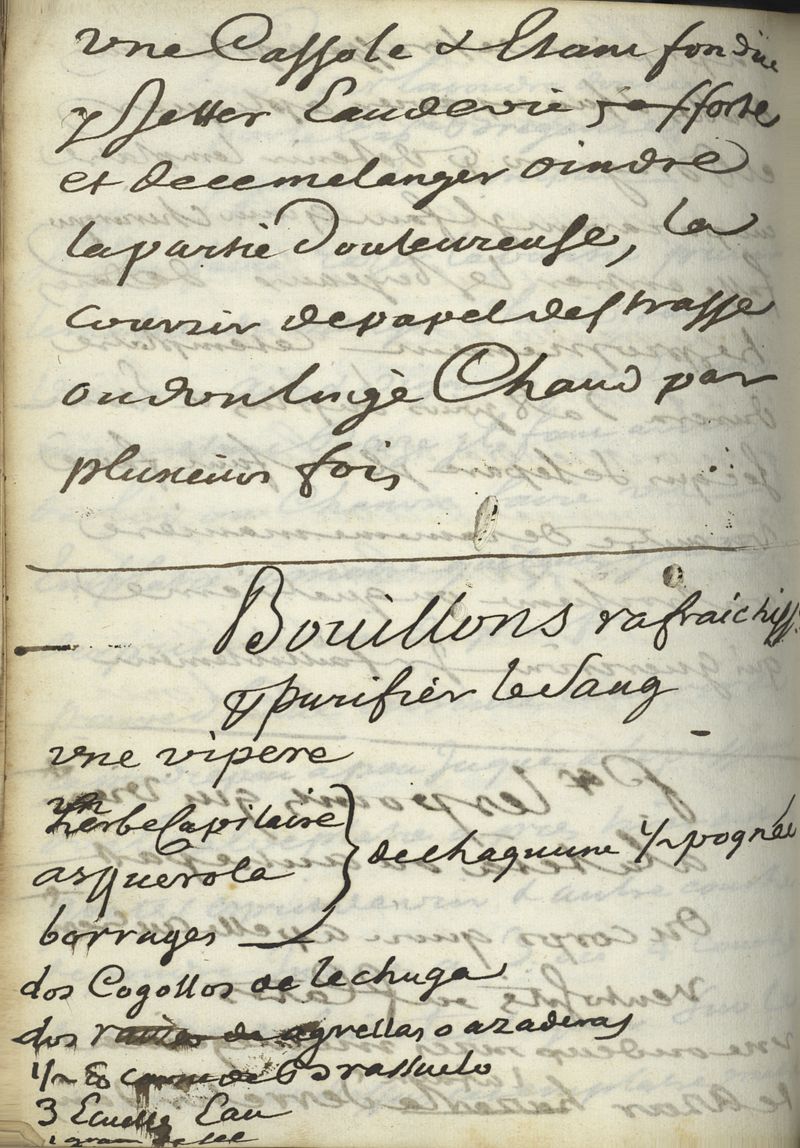 une Cassole & Etant fondue
y Jetter Eaudevie forte
et decemelanger oindre
lapartie Douleureuse, la
couvrir depapel destrasse
oudunlinge Chaud par
plusieurs fois
Bouillons rafraichiss
purifier le Sang
une vipere
herbe Capilaire
asquerola
borrages
dechaquune 1/2 pognée
dos Cogollos de lechuga
dos raises de agrellas o azaderas
1/2 carne de
3 Ecuelle Eau